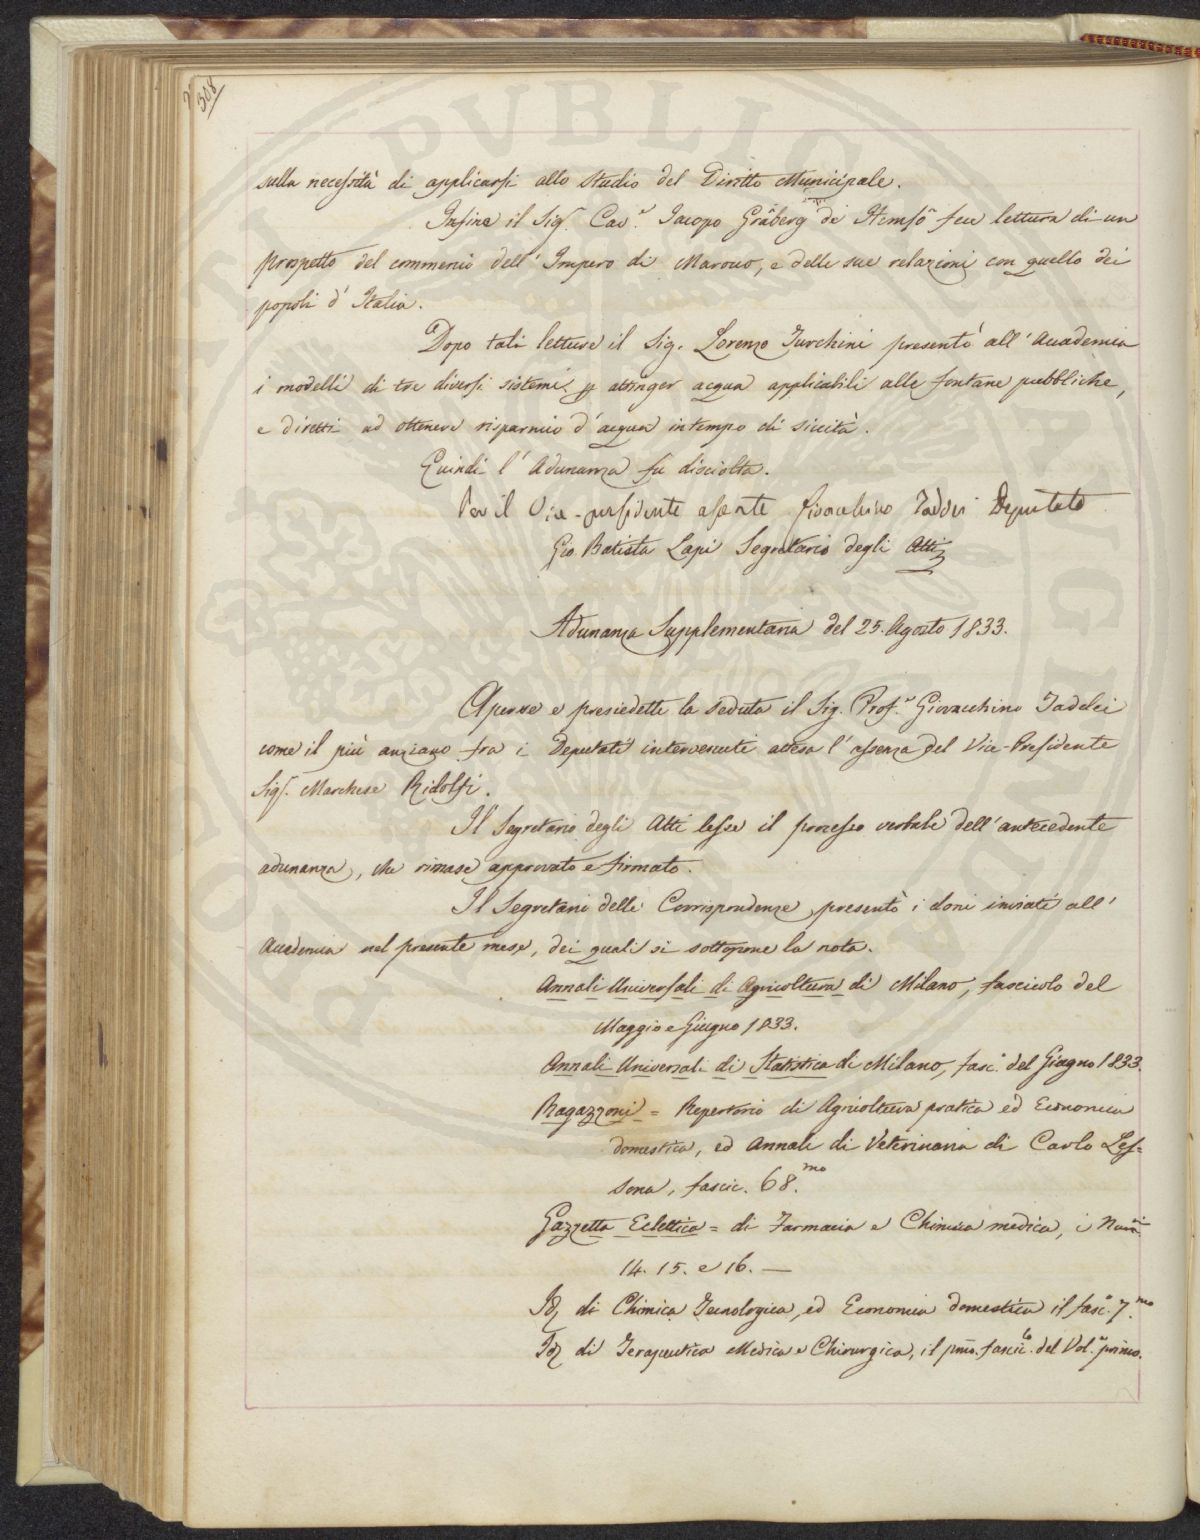 308
sulla necessità di applicarsi allo studio del Diritto Municipale.
Infine il Sigr. Cavr. Iacopo Gråberg di Hemsö fece lettura di un
prospetto del commercio dell'Impero di Marocco, e delle sue relazioni con quello dei
popoli d'Italia.
Dopo tali letture il Sig. Lorenzo Turchini presentò all'Accademia
i modelli di tre diversi sistemi p attinger acqua applicabili alle fontane pubbliche,
e diretti ad ottenere risparmio d'acqua in tempo di siccità.
Quindi l'Adunanza fù disciolta.
Per il Vice-presidente assente Giovacchino Taddei Deputato
Gio Batista Lapi Segretario degli Atti
Adunanza Supplementaria del 25. Agosto 1833.
Aperse e presiedette la seduta il Sig. Profr. Giovacchino Taddei
come il più anziano fra i Deputati intervenuti attesa l'assenza del Vice-Presidente
Sigr. Marchese Ridolfi.
Il Segretario degli Atti lesse il processo verbale dell'antecedente
adunanza, che rimase approvato e firmato.
Il Segretario delle Corrispondenze presentò i doni inviati all'
Accademia nel presente mese, dei quali si sottopone la nota.
Annali Universali di Agricoltura di Milano, fascicolo del
Maggio e Giugno 1833.
Annali Universali di Statistica di Milano, fasc.o del Giugno 1833.
Ragazzoni = Repertorio di Agricoltura pratica ed Economia
domestica, ed Annali di Veterinaria di Carlo Les=
sona, fascic. 68.mo
Gazzetta Eclettica = di Farmacia e Chimica medica, i Num.i
14. 15. e 16. —
Id. di Chimica Tecnologica, ed Economia domestica il fasc.o 7.mo
Id. di Terapeutica Medica e Chirurgica, il pmo. fascic.lo del Vol.e primo.